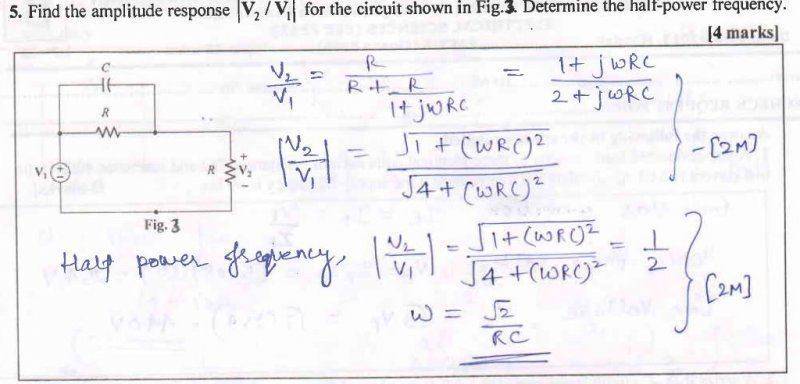 5. Find the amplitude response |V₂ / V₁| for the circuit shown in Fig.3. Determine the half-power frequency.
[4 marks]
C
R
V₁
+
-
R
+
V₂
-
Fig. 3
V₂/V₁ = R / (R + R/(1+jωRC)) = (1+jωRC) / (2+jωRC)
|V₂/V₁| = √(1+(ωRC)²) / √(4+(ωRC)²)
-[2M]
Half power frequency, |V₂/V₁| = √(1+(ωRC)²) / √(4+(ωRC)²) = 1/2
ω = √2 / RC
[2M]